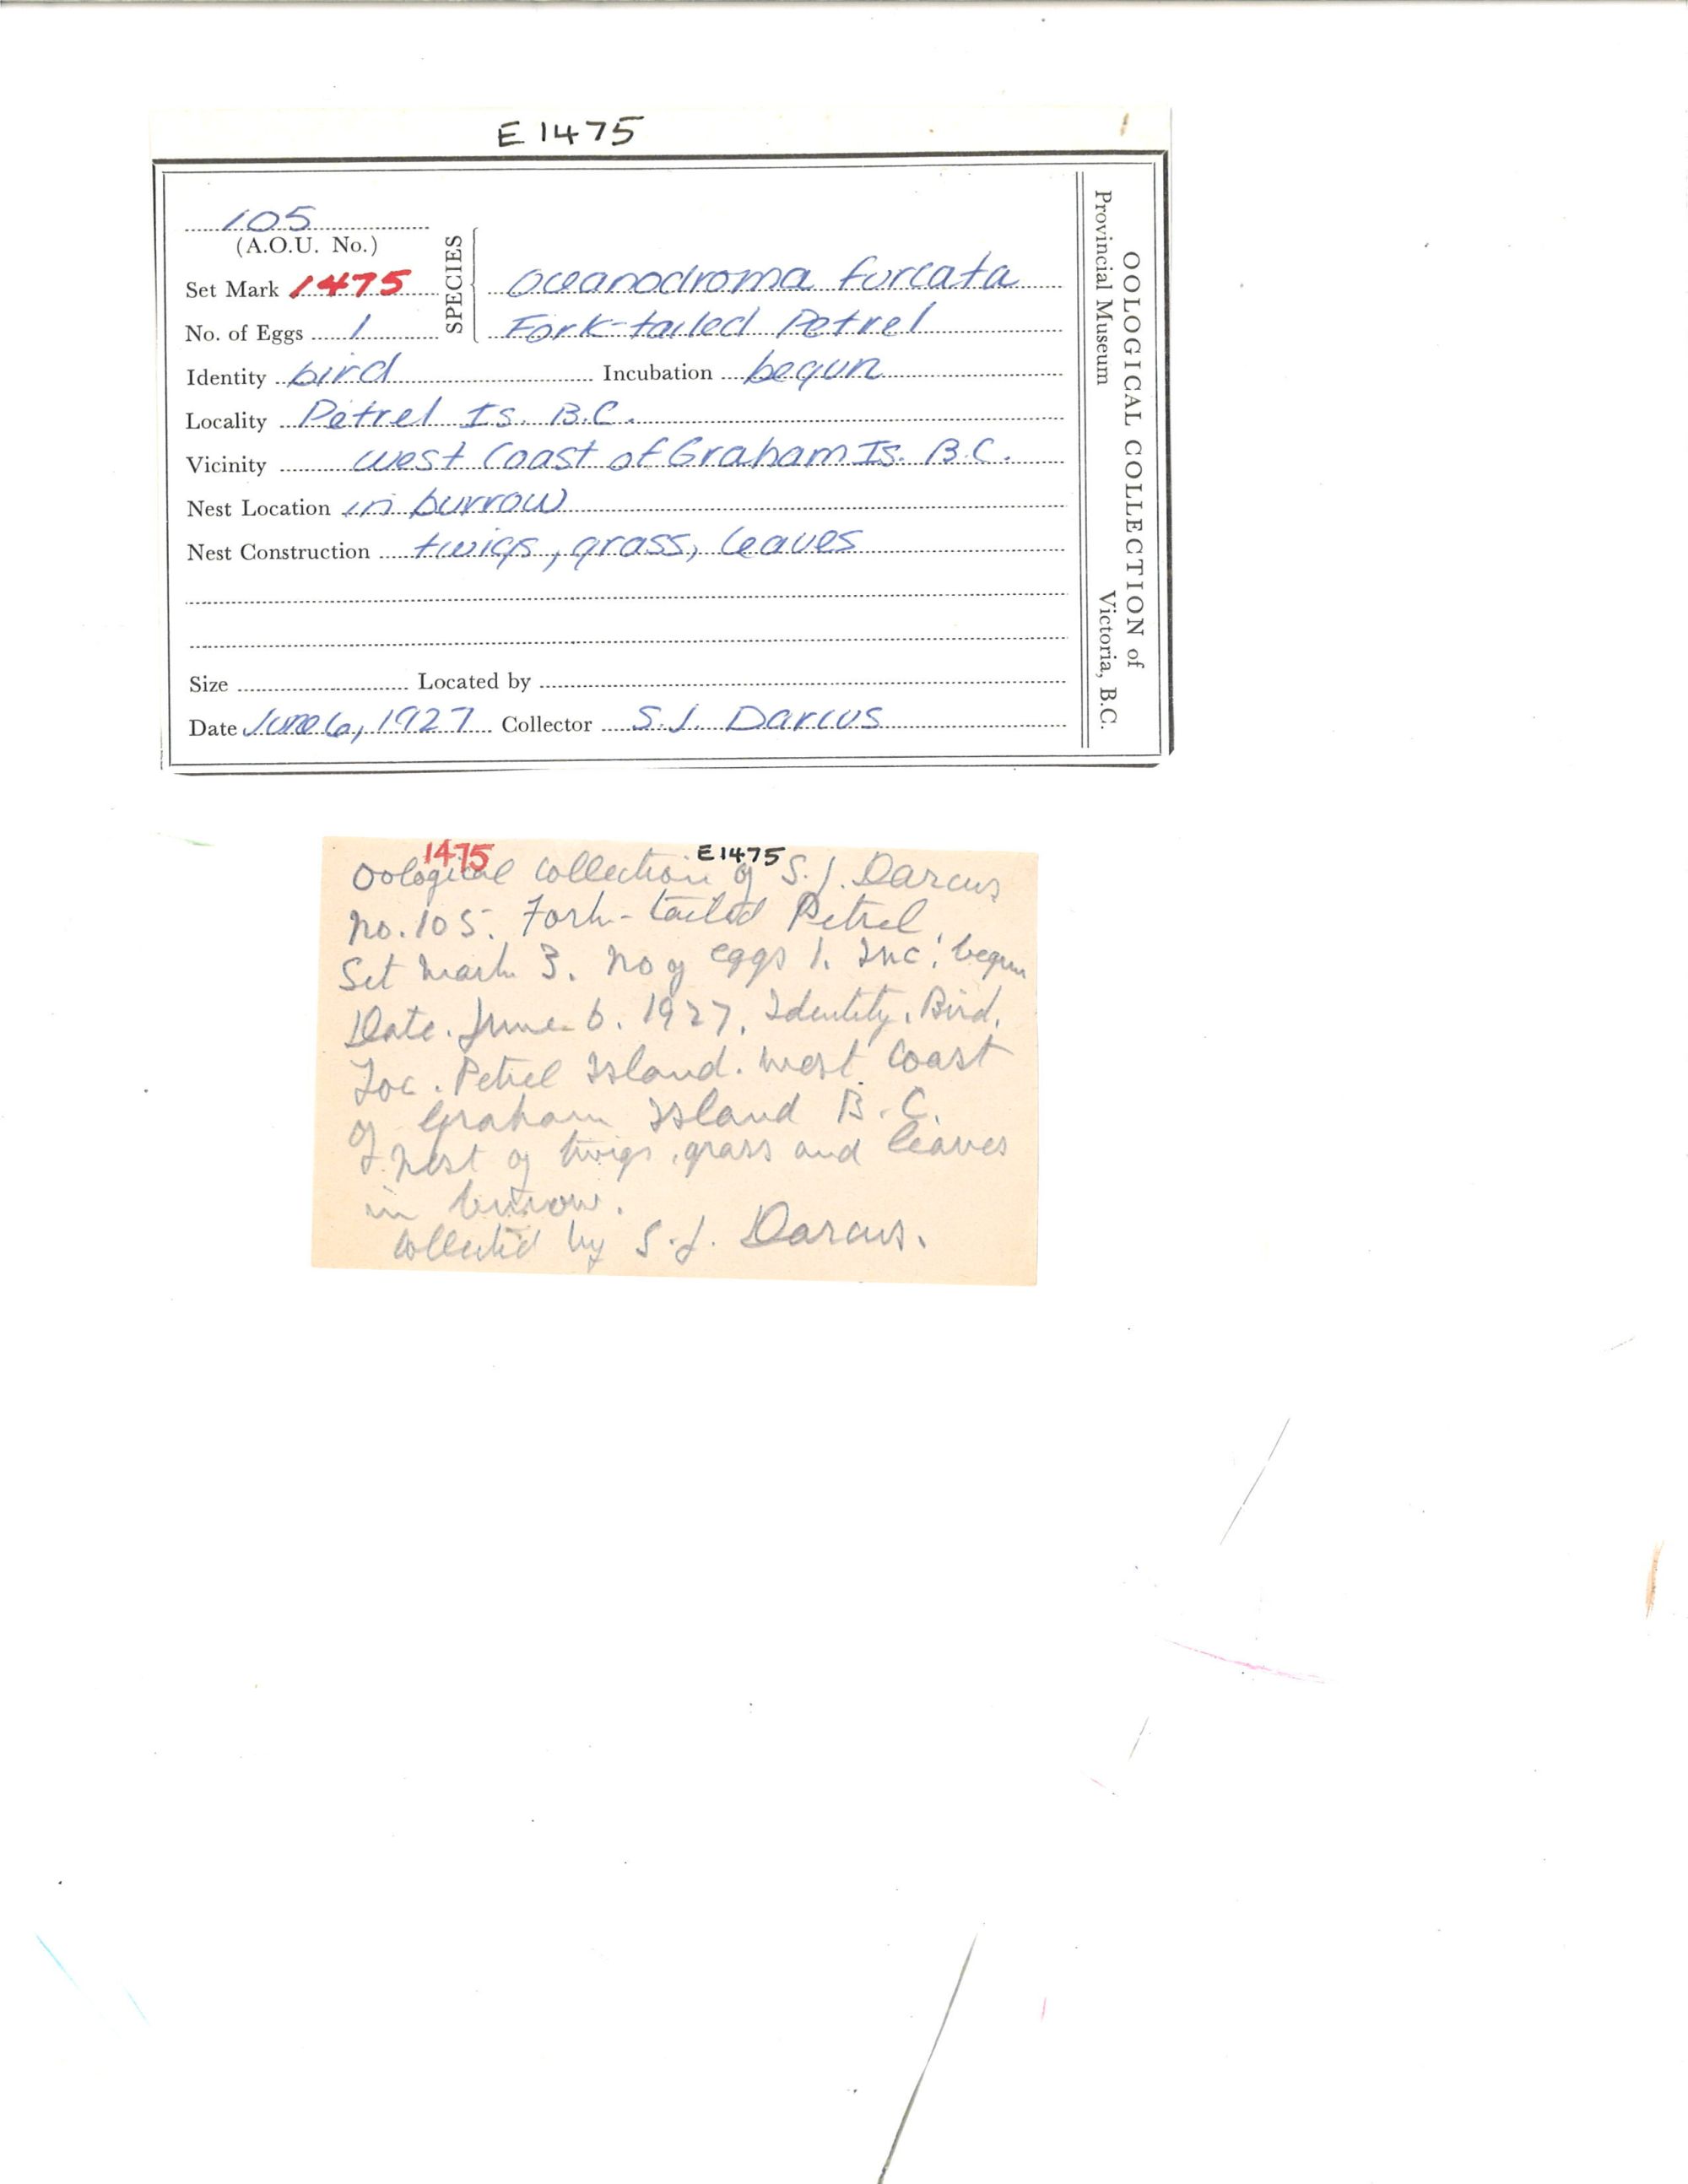 E 1475
105
(A.O.U. No.)
Set Mark 1475
No. of Eggs 1
SPECIES
Oceanodroma furcata
Fork-tailed Petrel
Identity bird Incubation begun
Locality Petrel Is. B.C.
Vicinity west Coast of Graham Is. B.C.
Nest Location in burrow
Nest Construction twigs, grass, leaves
Size Located by
Date June 6, 1927 Collector S.J. Darcus
OOLOGICAL COLLECTION of
Provincial Museum Victoria, B.C.
1475 E1475
Oological collection of S.J. Darcus
No. 105. Fork-tailed Petrel.
Set Mark 3. No of eggs 1. Inc: begun
Date. June 6. 1927. Identity. Bird.
Loc. Petrel Island. West Coast
of Graham Island B.C.
Nest of twigs, grass and leaves
in burrow.
Collected by S.J. Darcus.